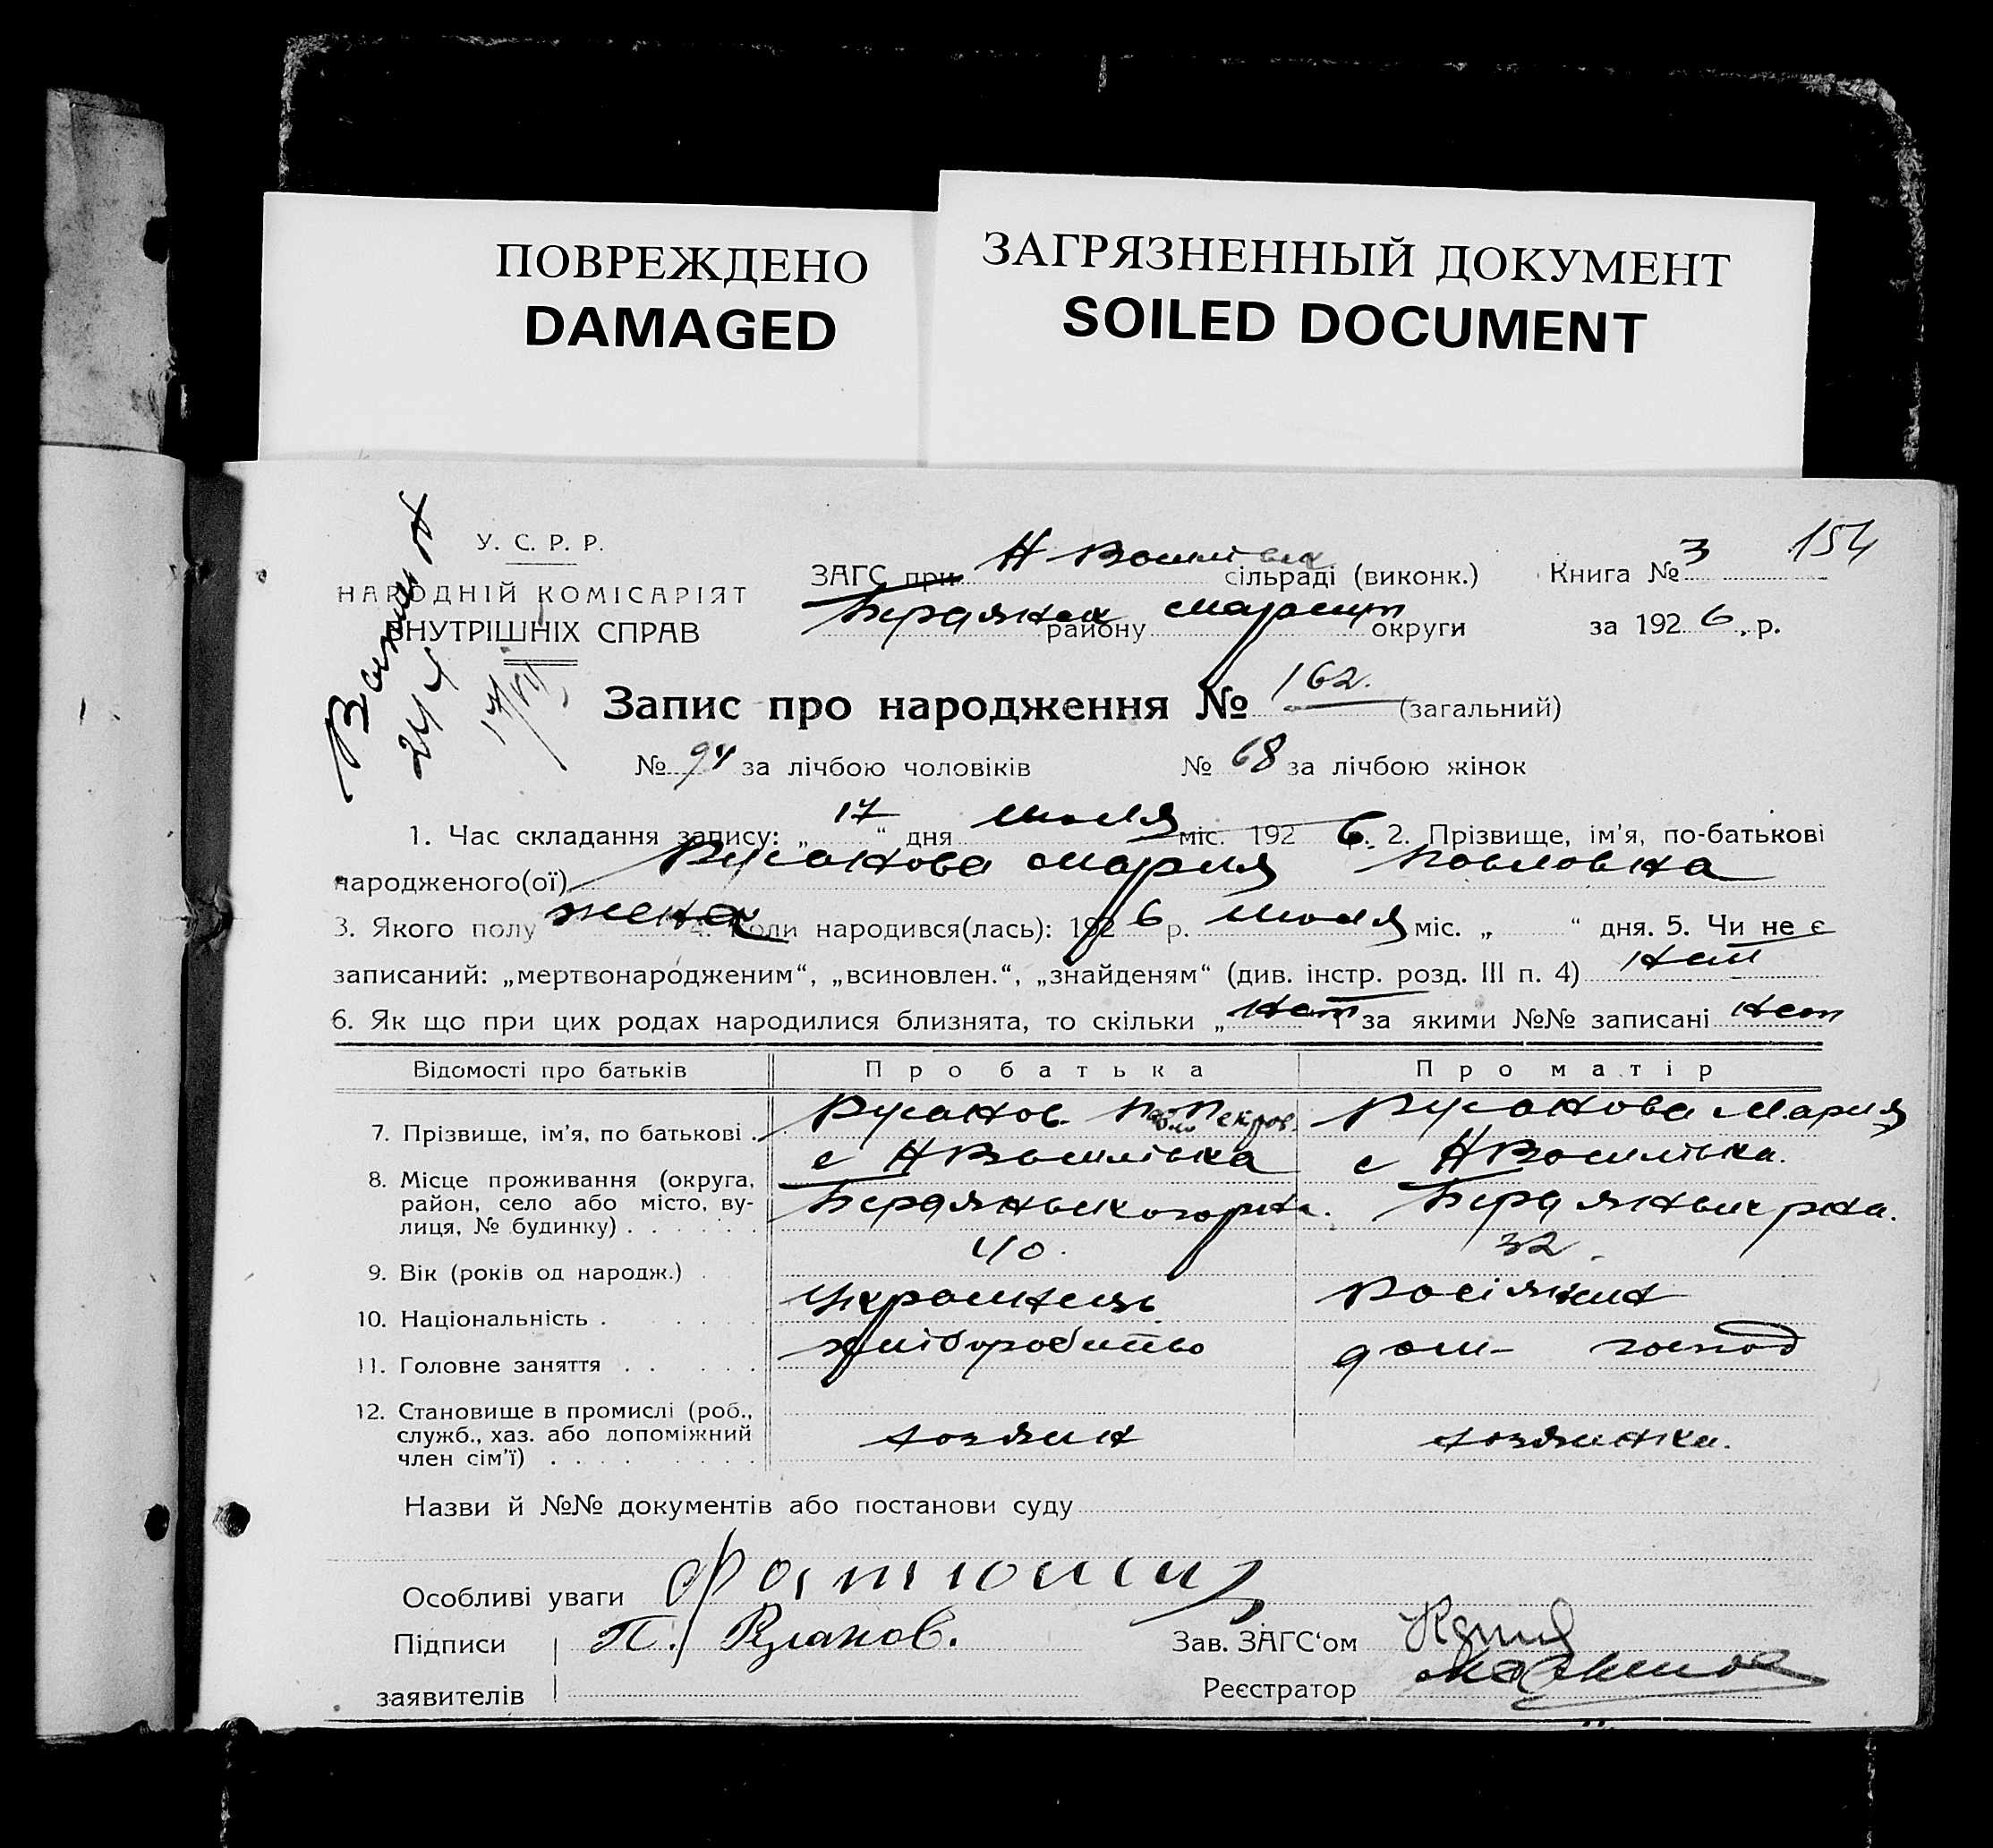 ПОВРЕЖДЕНО
DAMAGED
ЗАГРЯЗНЕННЫЙ ДОКУМЕНТ
SOILED DOCUMENT
154
У. С. Р. Р.
НАРОДНІЙ КОМІСАРІЯТ
ВНУТРІШНІХ СПРАВ
17/VII
ЗАГС при Н Василівск сільраді (виконк.) Книга № 3
Бердянск району Мариуп округи за 1926 р.
Запис про народження № 162. (загальний)
№ 94 за лічбою чоловіків № 68 за лічбою жінок
1. Час складання запису: „17“ дня июля міс. 1926. 2. Прізвище, ім’я, по-батькові
народженого(ої) Русакова Мария Павловна
3. Якого полу жена 4. Коли народився(лась): 1926 р. июля міс. „ “ дня. 5. Чи не є
записаний: „мертвонародженим“, „всиновлен.“, „знайденям“ (див. інстр. розд. III п. 4) нет
6. Як що при цих родах народилися близнята, то скільки „нет“ за якими №№ записані нет
Відомості про батьків Про батька Про матір
7. Прізвище, ім’я, по батькові . Русаков Павло Петров. Русакова Мария
8. Місце проживання (округа, с НВасилівка с НВасилівка.
район, село або місто, ву- Бердянського р-на. Бердянськ р-на.
лиця, № будинку) . . . . . .
9. Вік (років од народж.) . 40. 32.
10. Національність . . . . . Украинець Росіянин
11. Головне заняття . . . . . хліборобство дом- господ
12. Становище в промислі (роб.,
служб., хаз. або допоміжний хозяин хозяинка.
член сім’ї) . . . . . . . .
Назви й №№ документів або постанови суду
Особливі уваги
Підписи П. Русаков. Зав. ЗАГС‘ом
заявителів Реєстратор